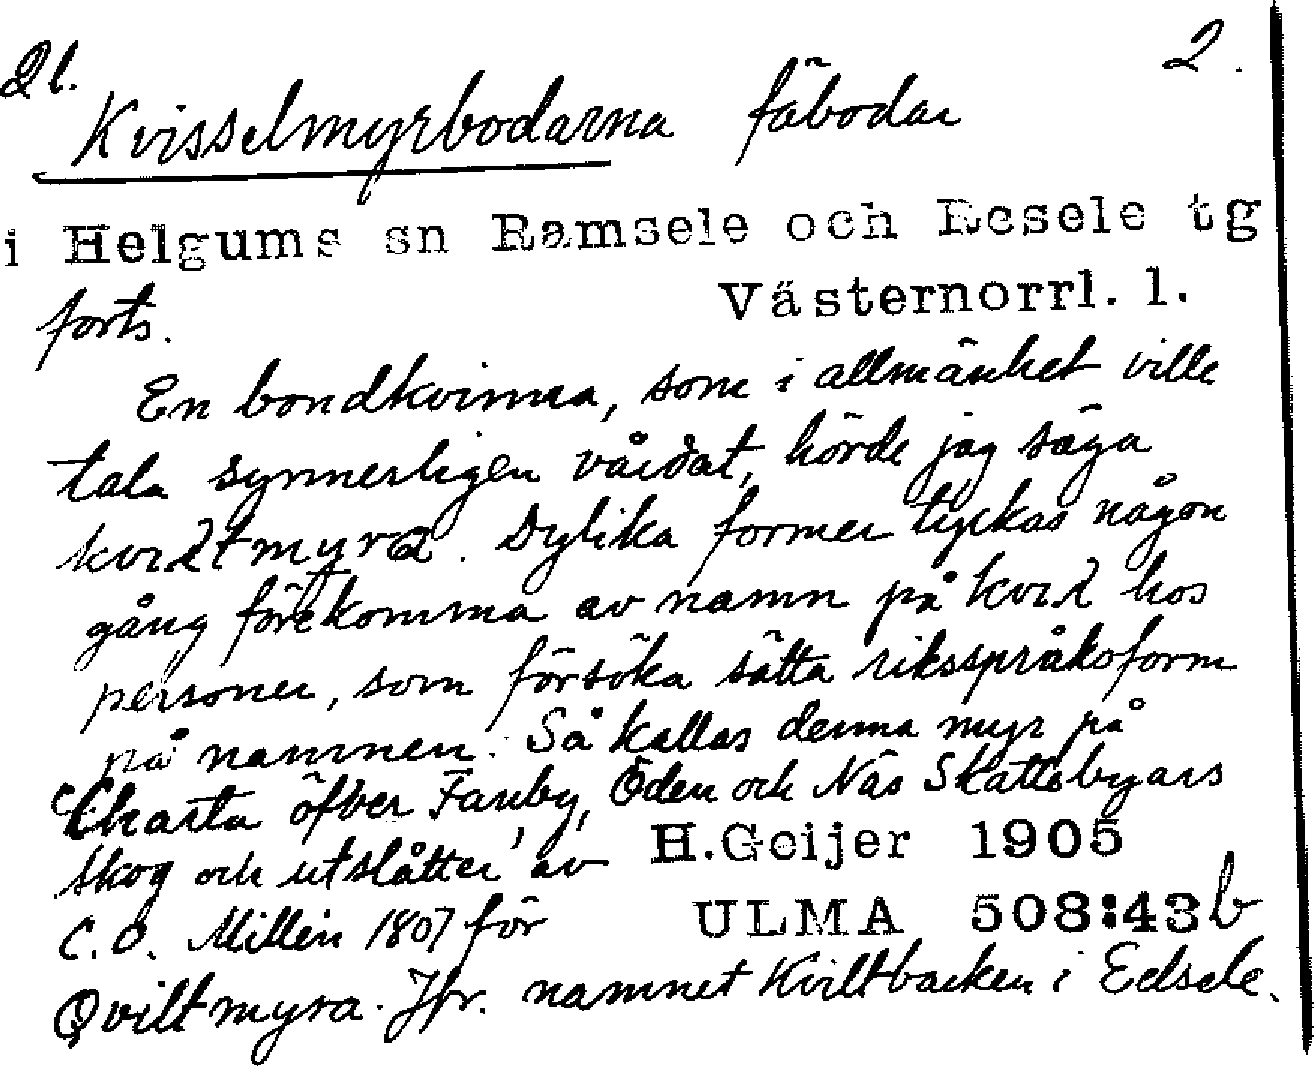 Ål. 2.
Kvisselmyrbodarna fäbodar
i Helgums sn Ramsele och Resele tg
forts. Västernorrl. l.
En bondkvinna, som i allmänhet ville
tala synnerligen vårdat, hörde jag säga
. Dylika former tyckas någon
gång förekomma av namn på hos
personer, som försöka sätta riksspråksform
på namnen. Så kallas denna myr på
"Charta öfver Fanby, Öden och Näs Skattebyars
skog och utslåtter" av H.Geijer 1905
C.O. Millén 1807 för ULMA 508:43b
Qviltmyra. Jfr. namnet Kviltbacken i Edsele.